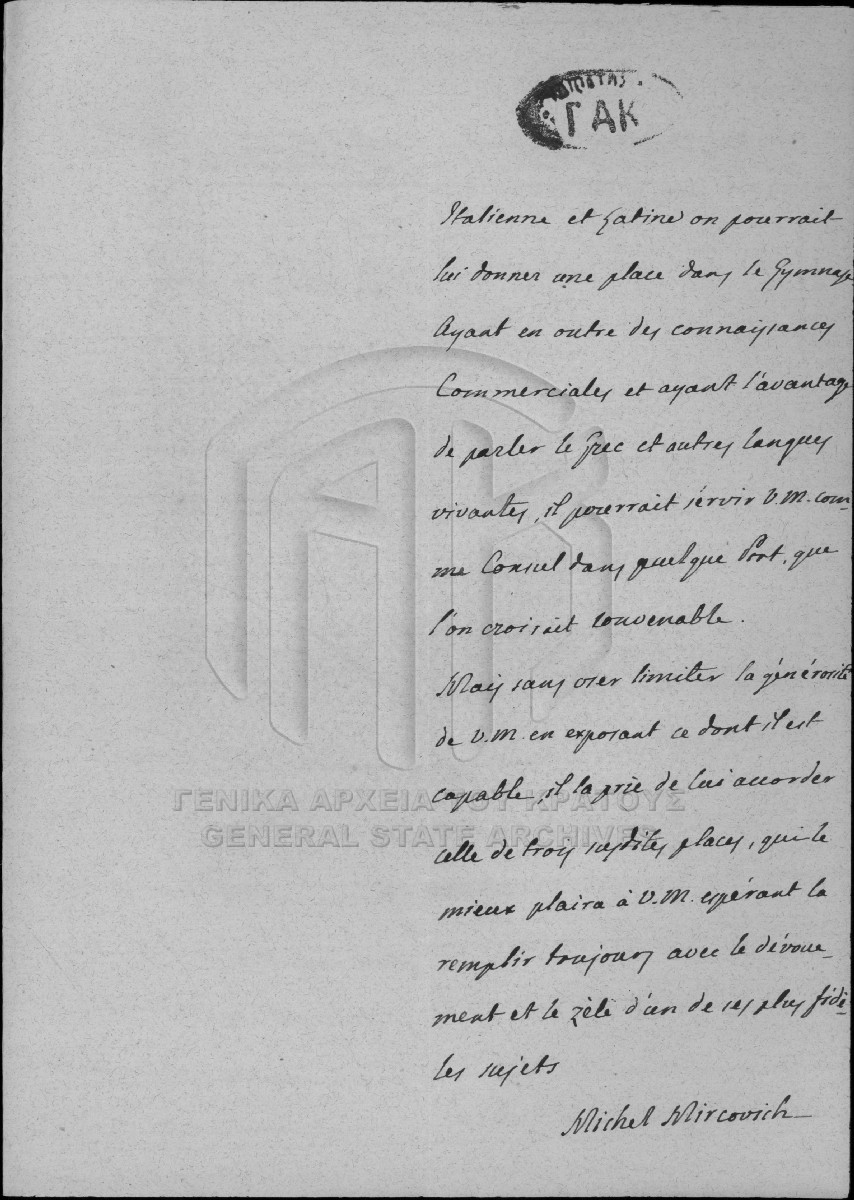 ΓΑΚ
Italienne et Latine on pourrait
lui donner une place dans le Gymnase
Ayant en outre des connaissances
Commerciales et ayant l'avantage
de parler le Grec et autres langues
vivantes, il pourrait servir V.M. com-
me Consul dans quelque Port, que
l'on croisait convenable.
Mais sans oser limiter la générosité
de V.M. en exposant ce dont il est
capable, il la prie de lui accorder
celle de trois susdites places, qui le
mieux plaira à V.M. espérant la
remplir toujours avec le dévoue-
ment et le zèle d'un de ses plus fidè-
les sujets
Michel Mircovich
ΓΕΝΙΚΑ ΑΡΧΕΙΑ ΤΟΥ ΚΡΑΤΟΥΣ
GENERAL STATE ARCHIVES